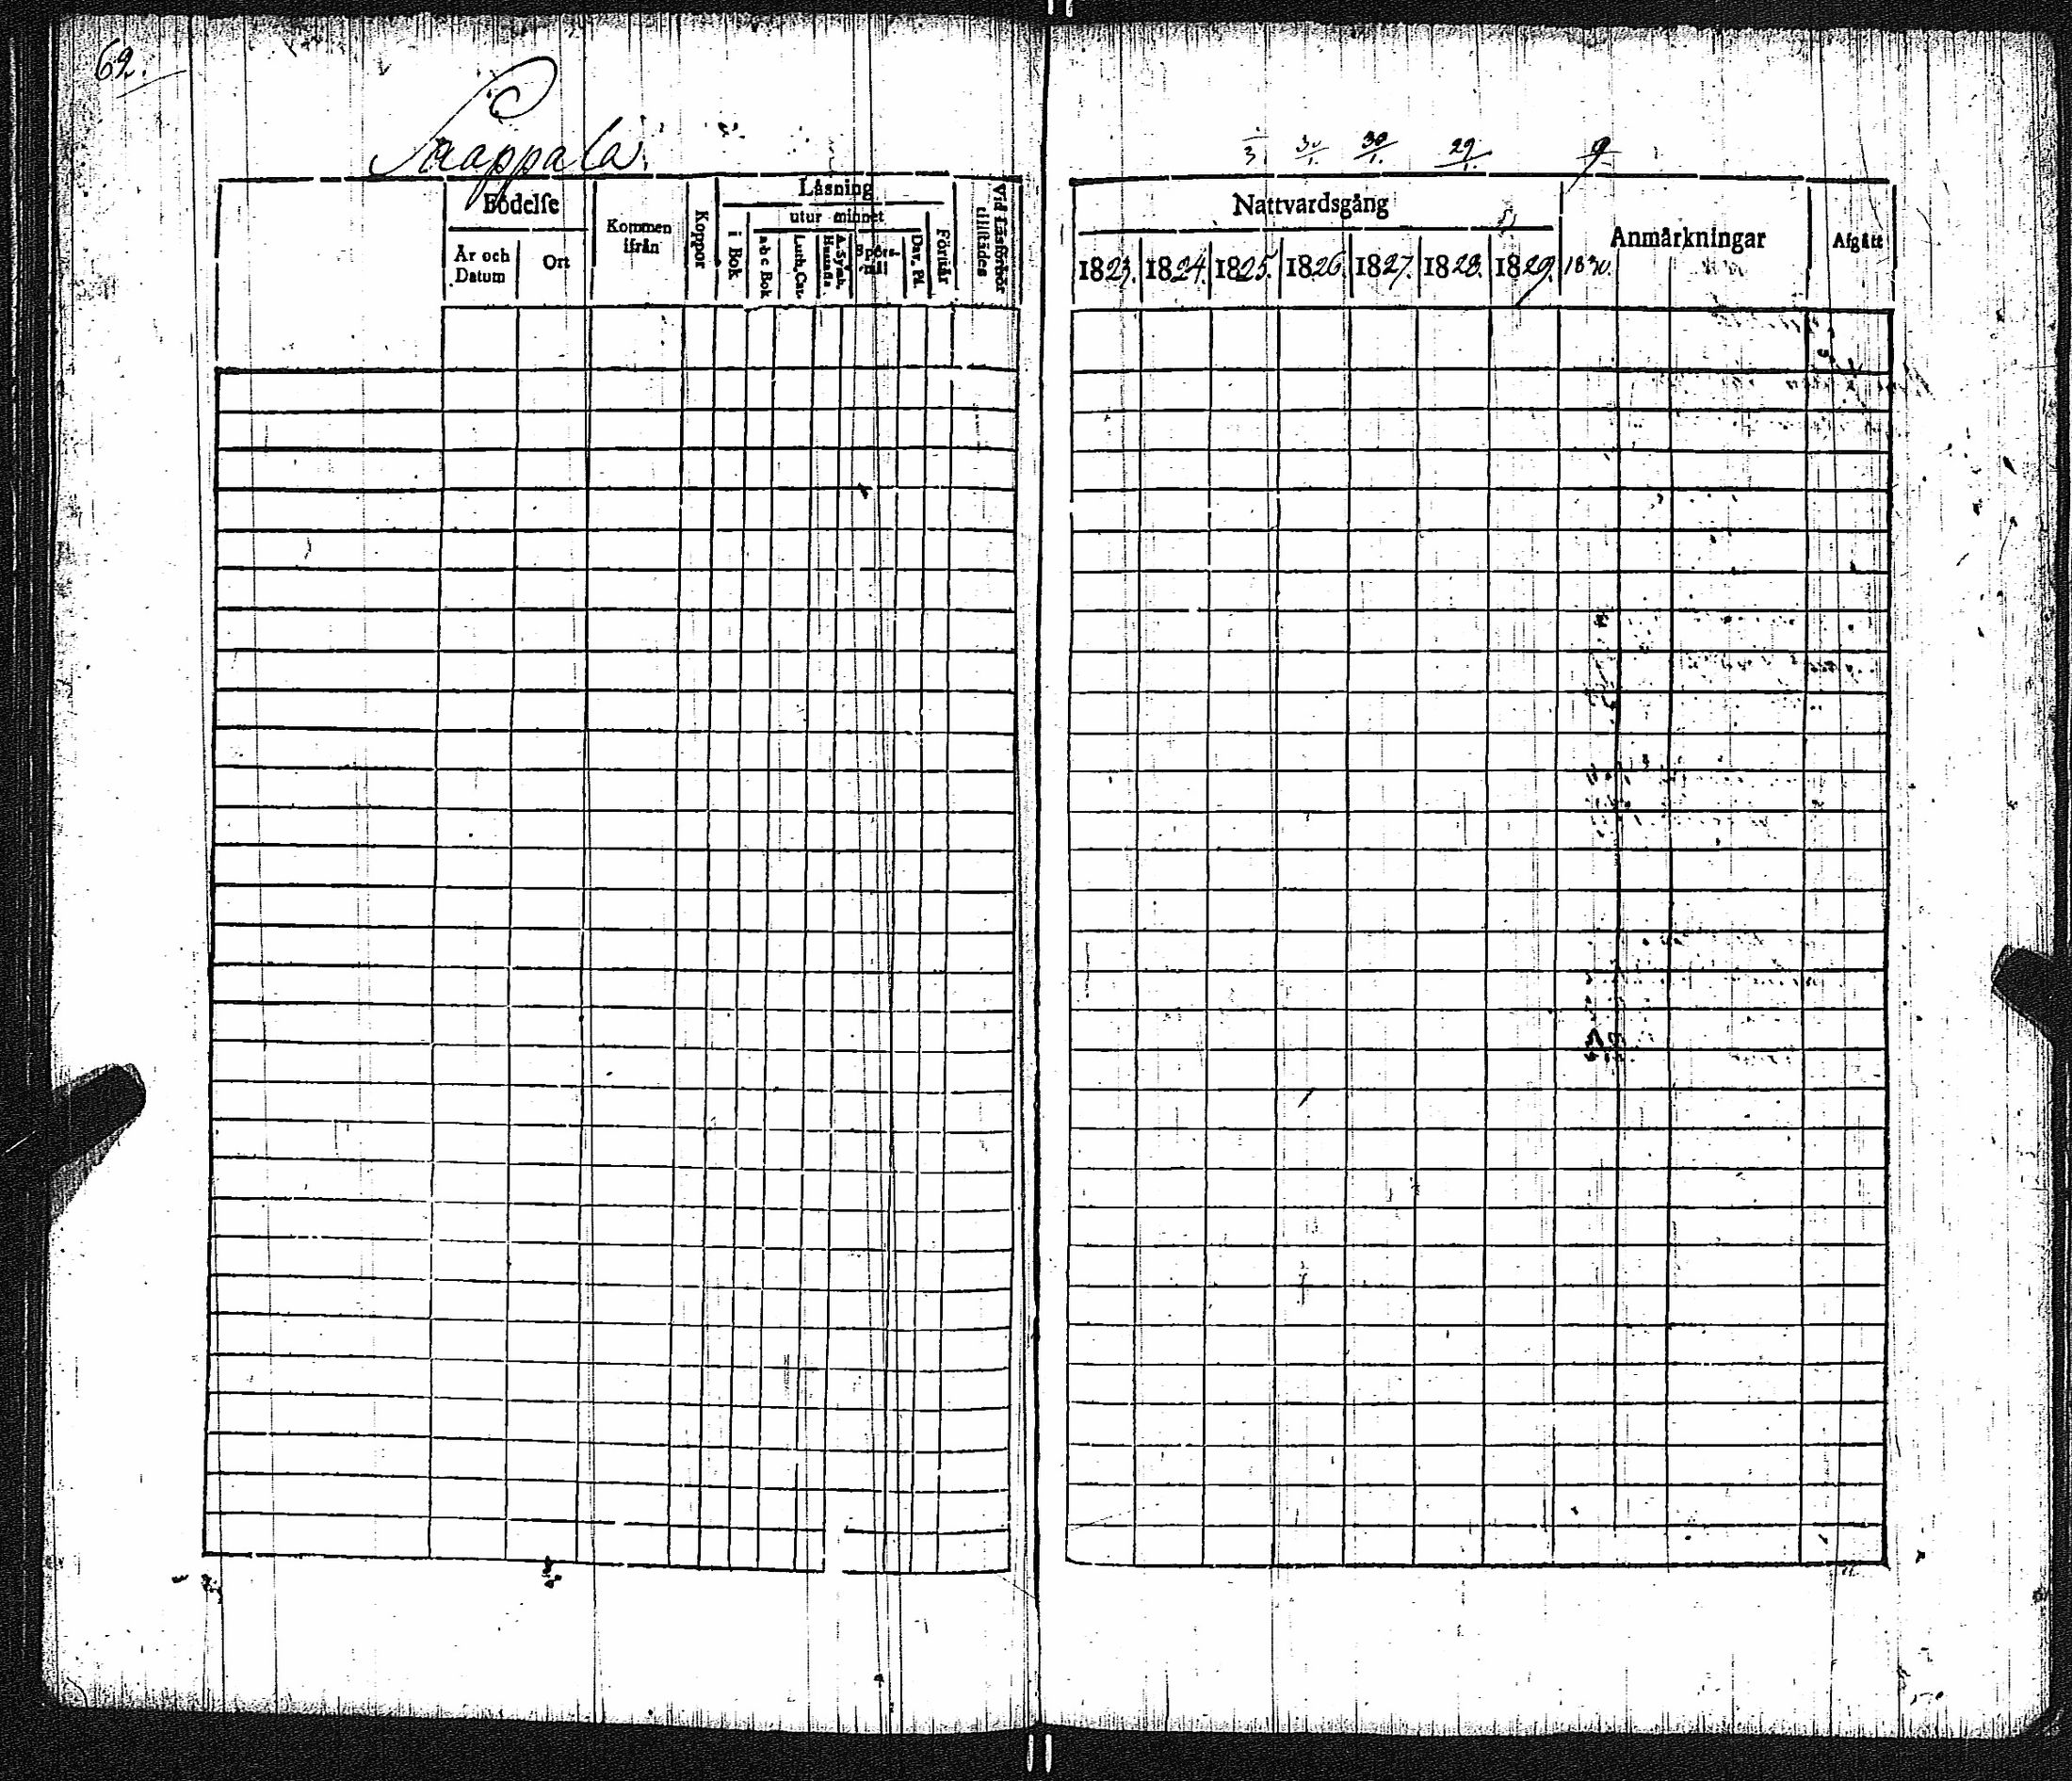 62.
Paappala.
Födelse
Kommen ifrån
Koppor
Läsning
Vid Läsförhör tillstädes
utur minnet
År och Datum
Ort
i Bok
a b c Bok
Luth. Cat.
A. Symb. Hustafla
Spörsmål
Dav. Ps.
Förstår
30/1. 30/1. 29/1. 9/1
Nattvardsgång
Anmärkningar
Afgått
1823. 1824. 1825. 1826. 1827. 1828. 1829. 1830.